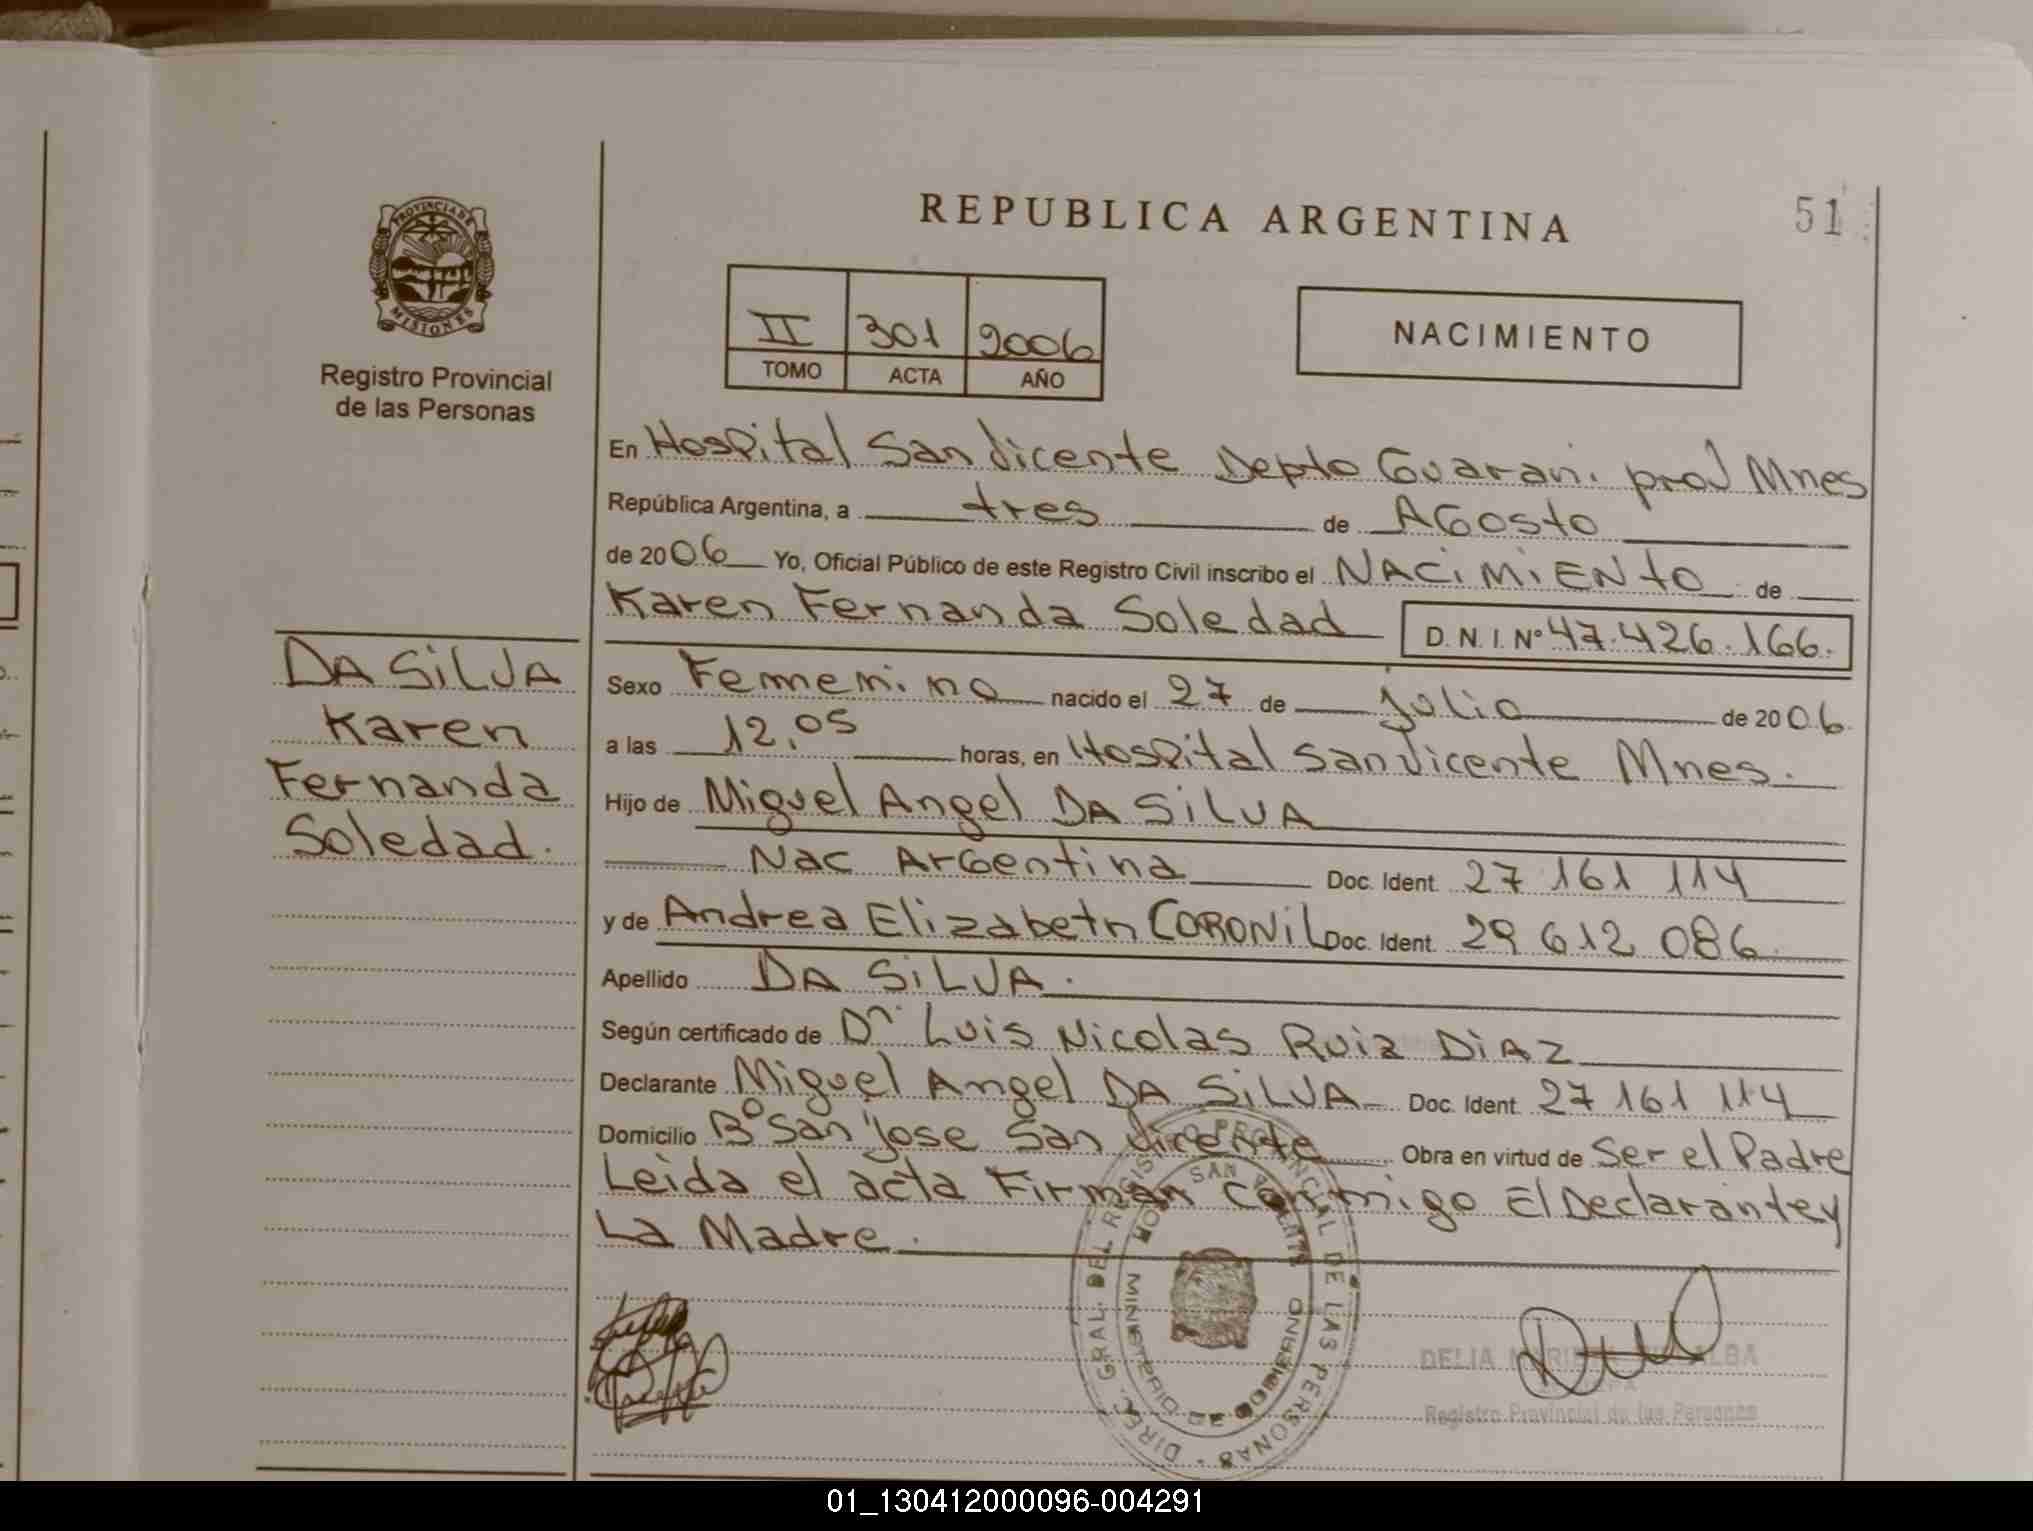 REPUBLICA ARGENTINA
51
PROVINCIA DE
MISIONES
Registro Provincial
de las Personas
II 301 2006
TOMO ACTA AÑO
NACIMIENTO
En Hospital San Vicente Depto Guarani. prov Mnes
República Argentina, a tres de AGosto
de 2006 Yo, Oficial Público de este Registro Civil inscribo el NACiMiENto de
Karen Fernanda Soledad D.N.I. Nº 47.426.166.
Sexo Femenino nacido el 27 de julio de 2006.
a las 12,05 horas, en Hospital San Vicente Mnes.
Hijo de Miguel Angel DA SiLVA
Nac ArGentina Doc. Ident. 27 161 114
y de Andrea Elizabeth CORONiL Doc. Ident. 29 612 086.
Apellido DA SiLVA.
Según certificado de Dr. Luis Nicolas Ruiz DiAZ
Declarante Miguel Angel DA SiLVA Doc. Ident. 27 161 114
Domicilio Bº San Jose San Vicente Obra en virtud de Ser el Padre
Leida el acta Firman conmigo El Declarante y
La Madre.
DA SiLVA
Karen
Fernanda
Soledad.
DIREC. GRAL. DEL REGISTRO PROVINCIAL DE LAS PERSONAS
SAN VICENTE
MINISTERIO DE GOBIERNO
DELIA
Registro Provincial de las Personas
01_130412000096-004291